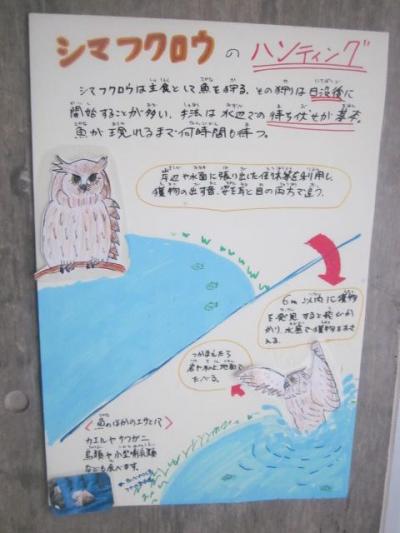 シマフクロウのハンティング
シマフクロウは主食として魚を狩る。その狩りは日没後に
開始することが多い。手法は水辺での待ち伏せが基本。
魚が現れるまで何時間も待つ。
岸辺や水面に張り出した倒木等を利用し、
獲物の出す音、姿を耳と目の両方で追う。
6m以内に獲物
を発見すると飛びか
かり、水面で獲物をおさ
える。
つかまえたら
岩や木の上、地面で
たべる。
<魚のほかのエサとして>
カエルやザリガニ
鳥類や小型哺乳類
なども食べます。